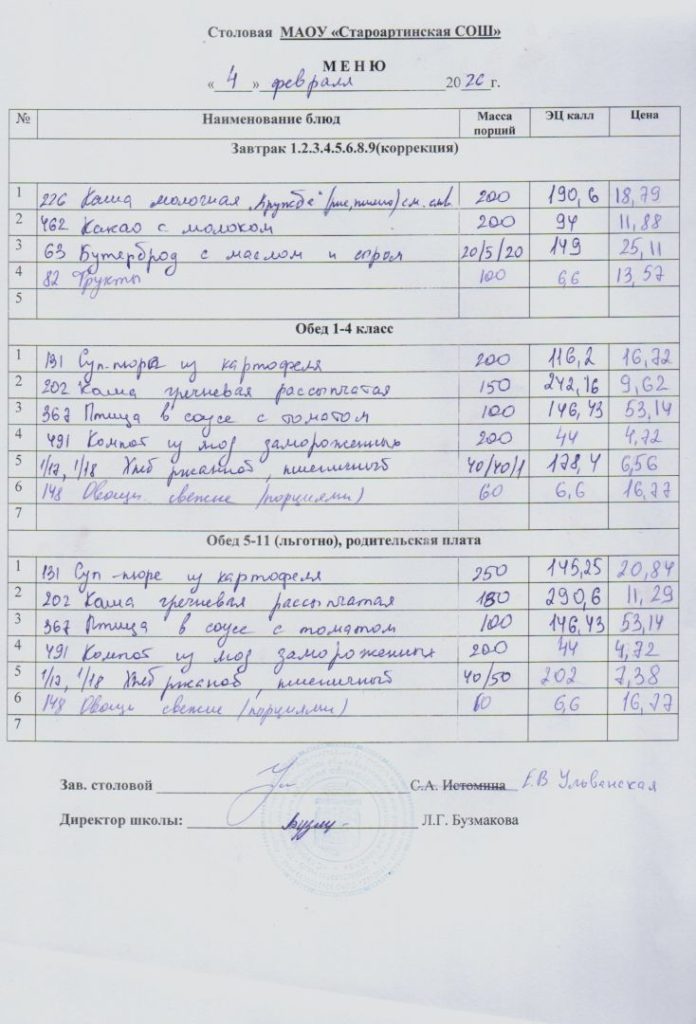 Столовая МАОУ «Староартинская СОШ»
М Е Н Ю
« 4 » февраля 2026 г.
№ Наименование блюд Масса порций ЭЦ калл Цена
Завтрак 1.2.3.4.5.6.8.9(коррекция)
1 226 Каша молочная "Дружба" (рис, пшено) см. слив 200 190,6 18,79
2 462 Какао с молоком 200 94 11,88
3 63 Бутерброд с маслом и сыром 20/5/20 149 25,11
4 82 Фрукты 100 6,6 13,57
5
Обед 1-4 класс
1 131 Суп-пюре из картофеля 200 116,2 16,72
2 202 Каша гречневая рассыпчатая 150 242,16 9,62
3 367 Птица в соусе с томатом 100 146,43 53,14
4 491 Компот из яго замороженных 200 44 4,72
5 1/17, 1/18 Хлеб ржаной, пшеничный 40/40/1 178,4 6,56
6 148 Овощи свежие (порциями) 60 6,6 16,77
7
Обед 5-11 (льготно), родительская плата
1 131 Суп-пюре из картофеля 250 145,25 20,84
2 202 Каша гречневая рассыпчатая 180 290,6 11,29
3 367 Птица в соусе с томатом 100 146,43 53,14
4 491 Компот из яго замороженных 200 44 4,72
5 1/17, 1/18 Хлеб ржаной, пшеничный 40/50 202 7,38
6 148 Овощи свежие (порциями) 60 6,6 16,77
7
Зав. столовой С.А. Истомина Е.В Ульванская
Директор школы: Л.Г. Бузмакова